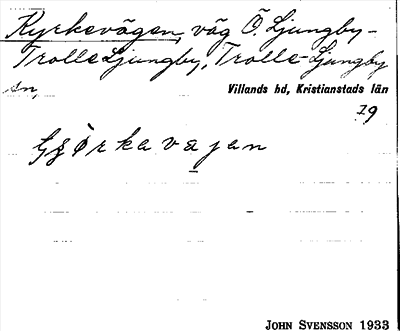 Kyrkevägen, väg Ö. Ljungby-
Trolle Ljungby, Trolle-Ljungby
sn,
Villands hd, Kristianstads län
19
rkavajan
JOHN SVENSSON 1933